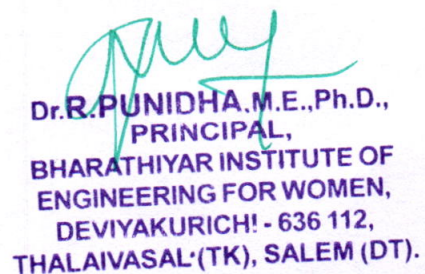 Dr.R.PUNIDHA.M.E.,Ph.D.,
PRINCIPAL,
BHARATHIYAR INSTITUTE OF
ENGINEERING FOR WOMEN,
DEVIYAKURICH! - 636 112,
THALAIVASAL (TK), SALEM (DT).